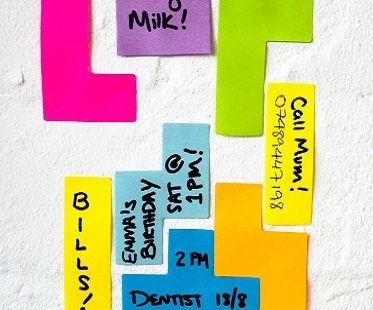 Milk!
Call Mum!
07489447198
SAT @
1PM!
EMMA'S
BIRTHDAY
BILLS!
2 PM
DENTIST 18/8